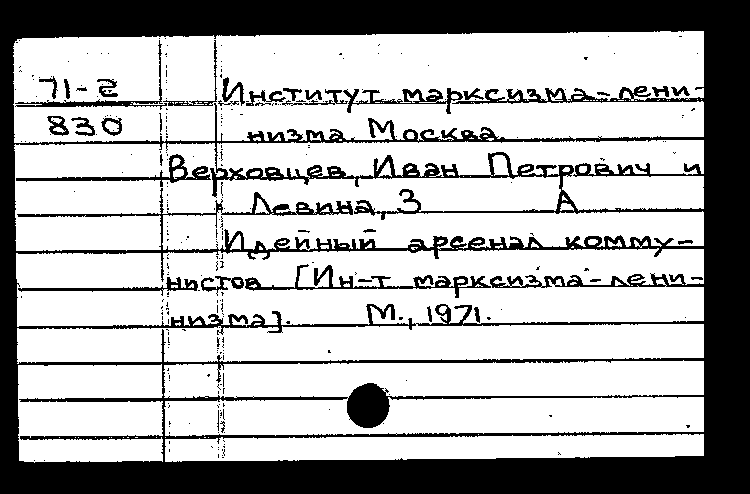 71-2 Институт марксизма-лени-
830 низма. Москва.
Верховцев, Иван Петрович и
Левина, З А
Идейный арсенал комму-
нистов. [Ин-т марксизма-лени-
низма]. М., 1971.